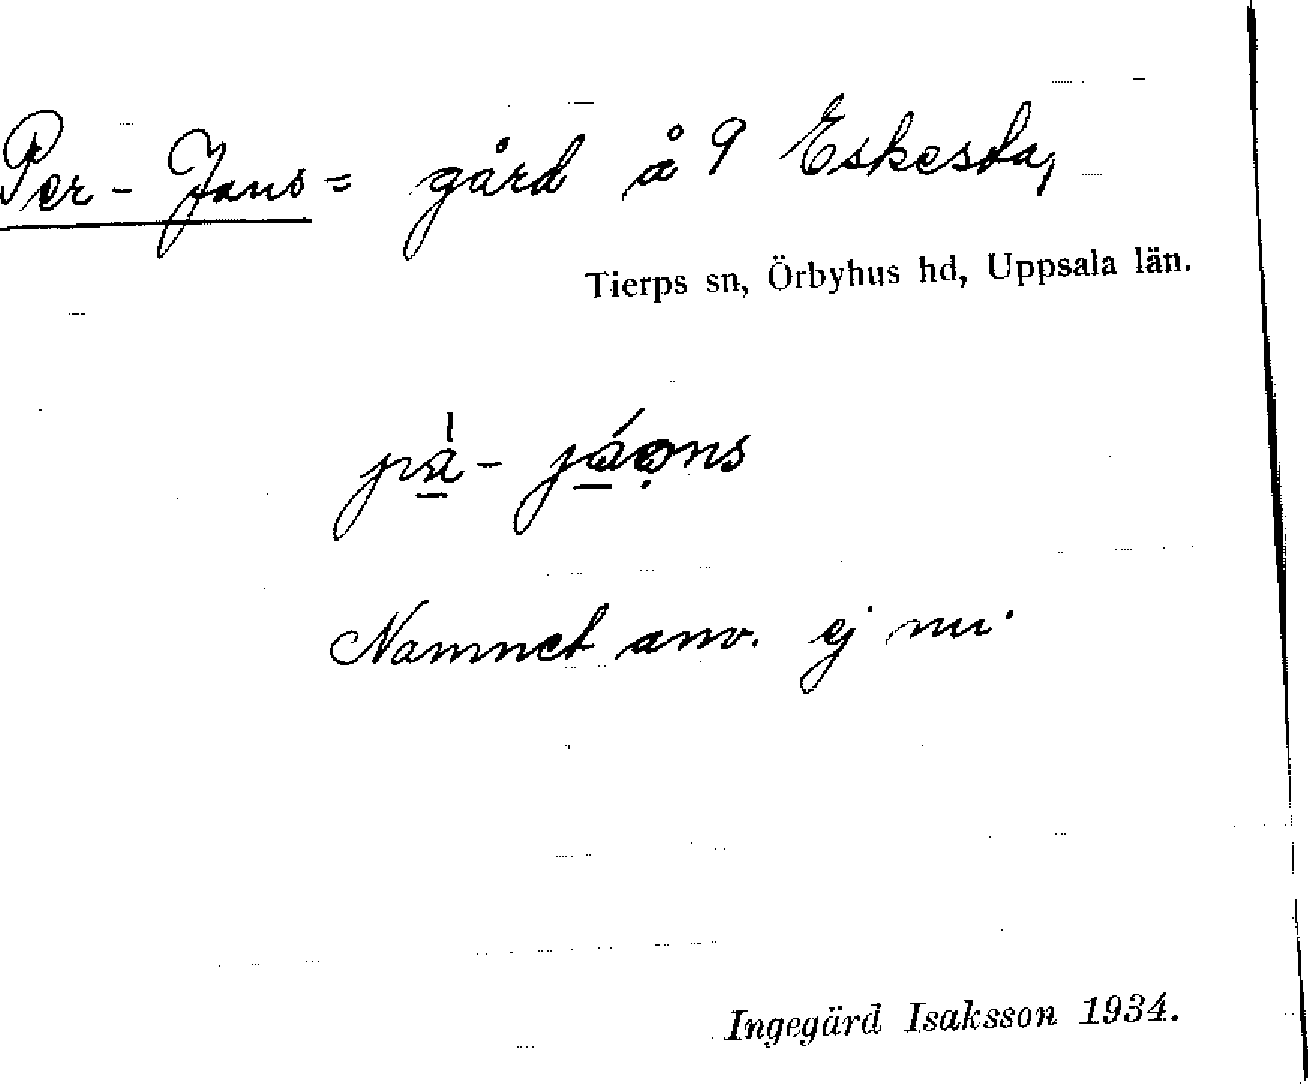 Per-Jans= gård å 9 Eskesta,
Tierps sn, Örbyhus hd, Uppsala län.
Namnet anv. ej nu.
Ingegärd Isaksson 1934.